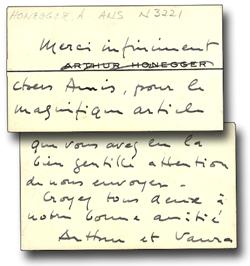 HONEGGER, A ANS N3221
Merci infiniment
ARTHUR HONEGGER
chers Amis, pour le
magnifique article
que vous avez eu la
bien gentille attention
de nous envoyer.
Croyez tous deux à
notre bonne amitié
Arthur et Vaura